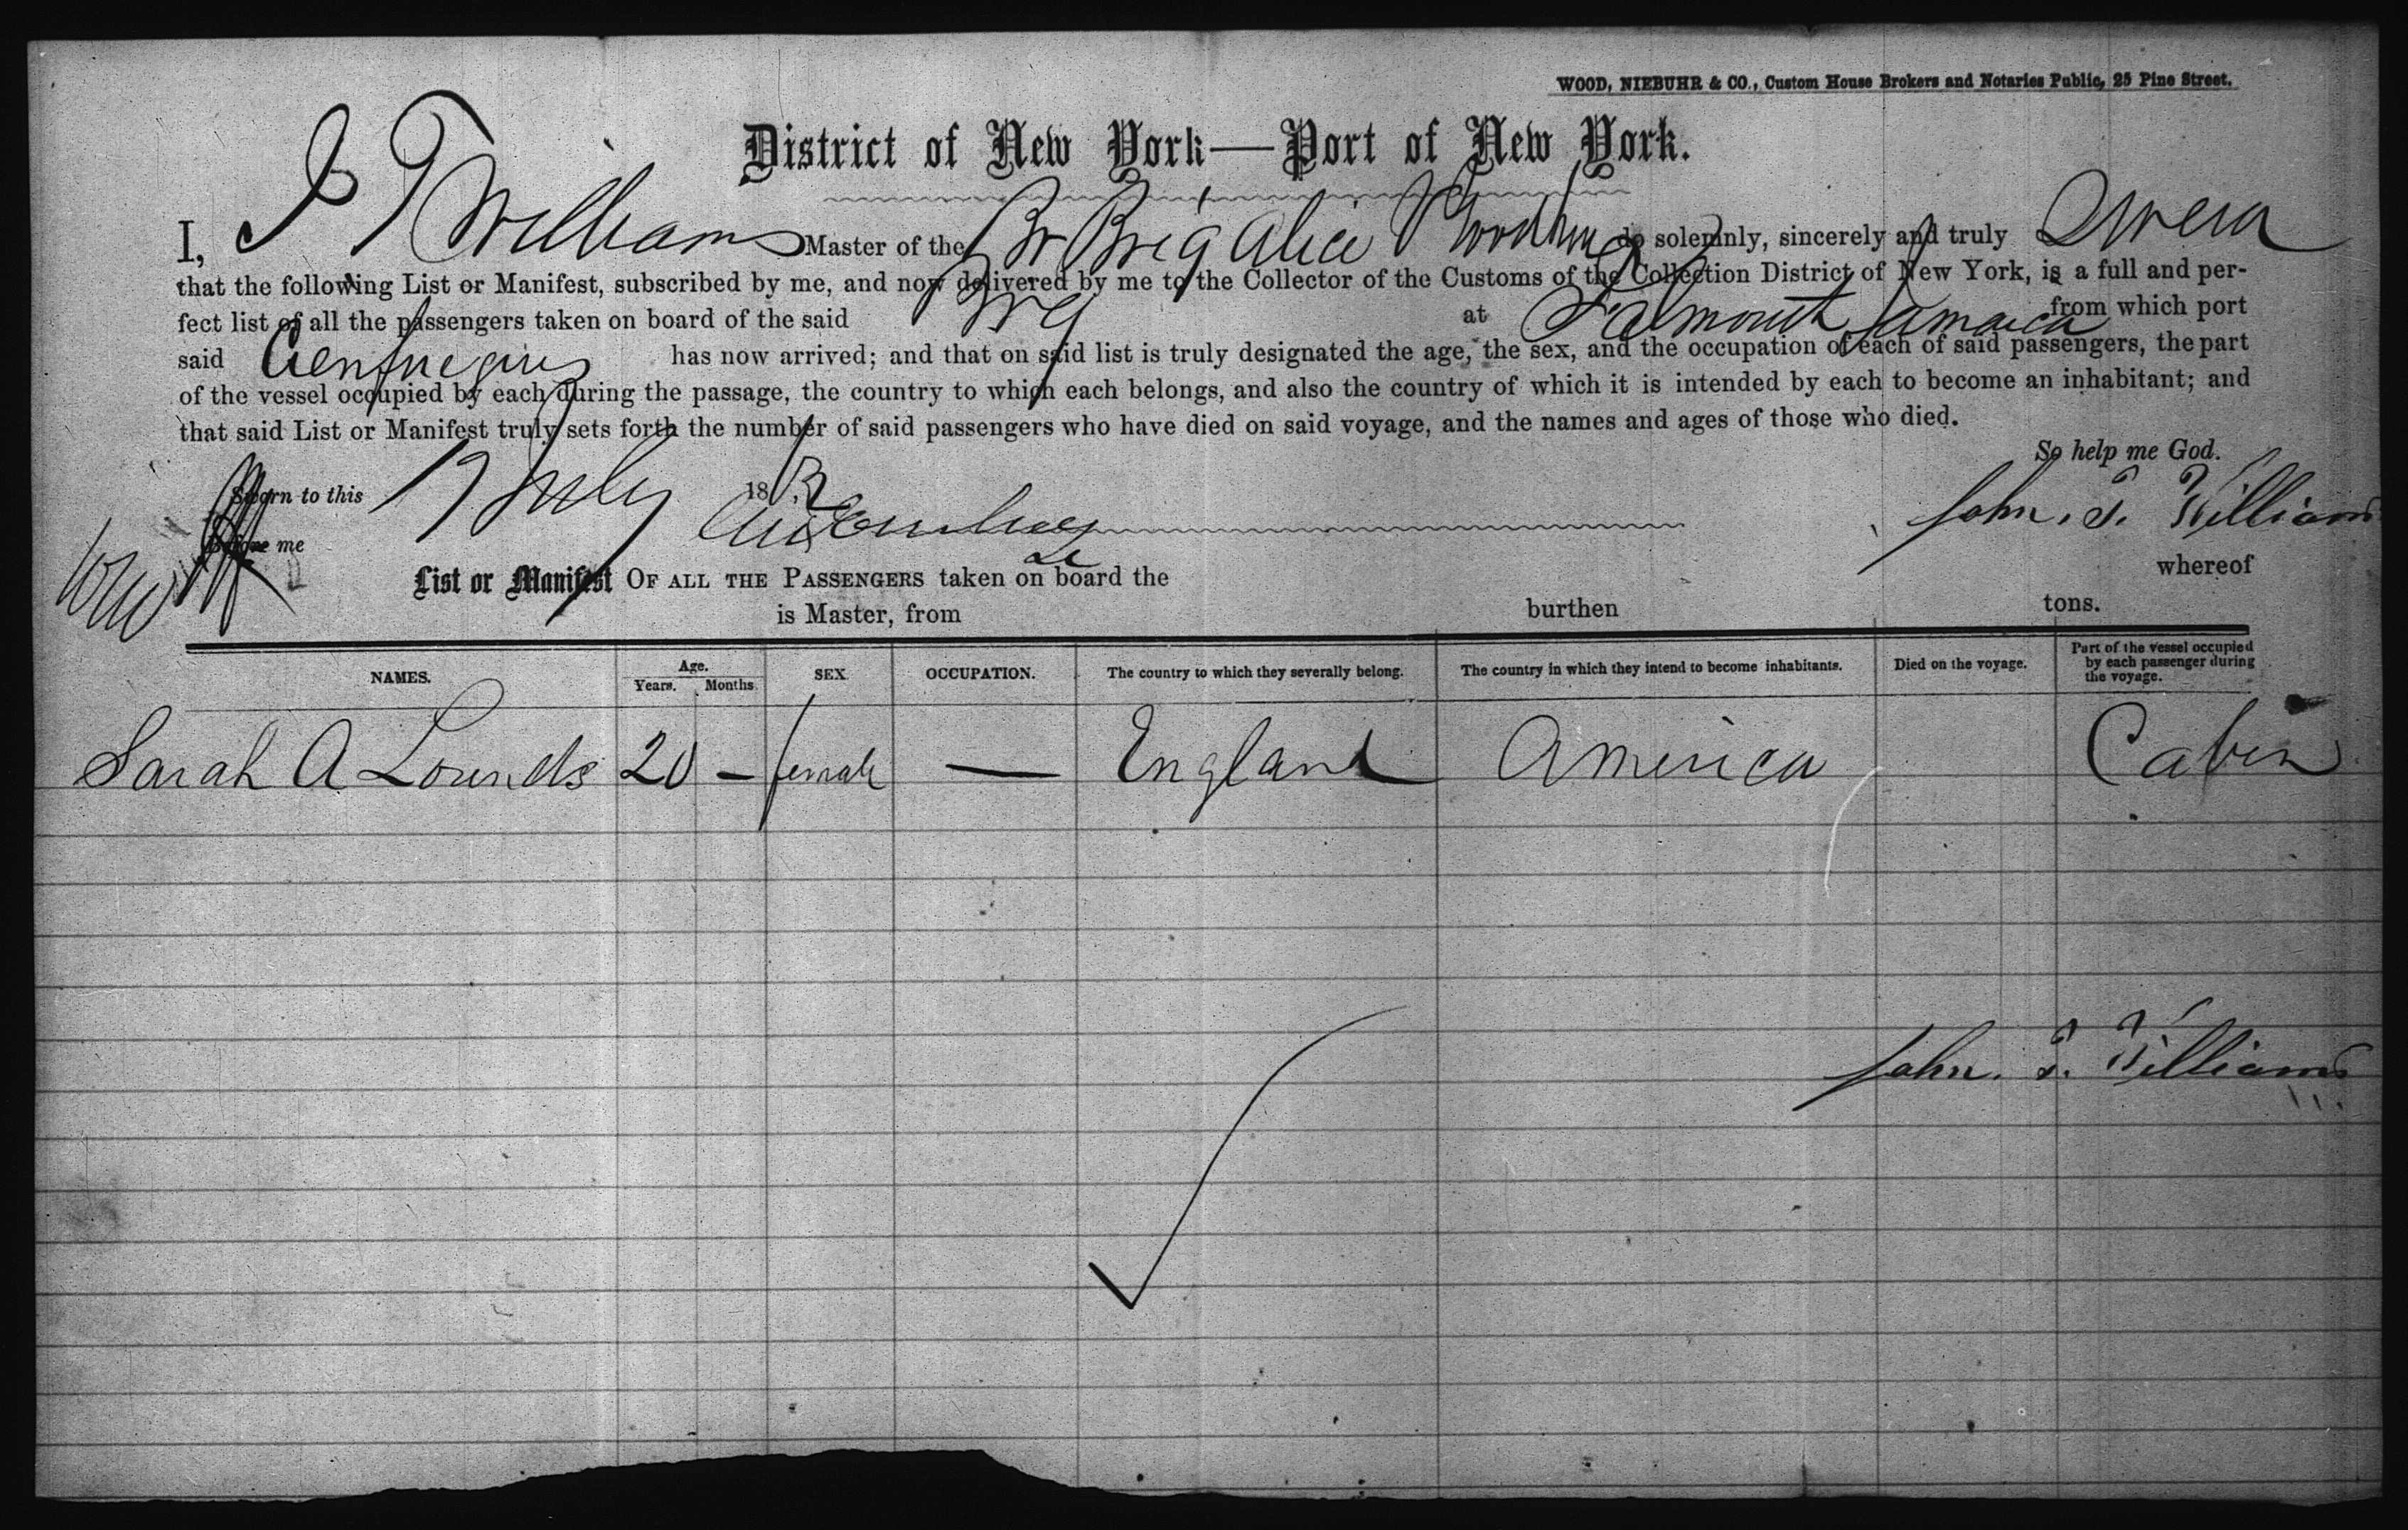 WOOD, NIEBUHR & CO., Custom House Brokers and Notaries Public, 25 Pine Street.
District of New York—Port of New York.
I, J T Williams Master of the Br Brig Alice do solemnly, sincerely and truly Swear
that the following List or Manifest, subscribed by me, and now delivered by me to the Collector of the Customs of the Collection District of New York, is a full and per-
fect list of all the passengers taken on board of the said Brig at Falmouth Jamaica from which port
said Cienfuegos has now arrived; and that on said list is truly designated the age, the sex, and the occupation of each of said passengers, the part
of the vessel occupied by each during the passage, the country to which each belongs, and also the country of which it is intended by each to become an inhabitant; and
that said List or Manifest truly sets forth the number of said passengers who have died on said voyage, and the names and ages of those who died.
So help me God.
Sworn to this July 18 John. T. Williams
Before me
List or Manifest OF ALL THE PASSENGERS taken on board the whereof
is Master, from burthen tons.
NAMES. Age. Years. Months. SEX. OCCUPATION. The country to which they severally belong. The country in which they intend to become inhabitants. Died on the voyage. Part of the vessel occupied by each passenger during the voyage.
Sarah A Lounds 20 — female — England America Cabin
John. T. Williams